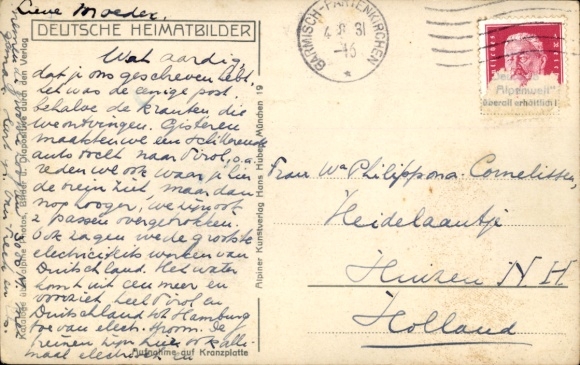 Lieve Moeder.
DEUTSCHE HEIMATBILDER
Wat aardig,
dat je ons geschreven hebt,
het was de eenige post.
behalve de kranten die
we ontvingen. Gisteren
maakten we een schitterende
auto tocht naar Tirol, o.a.
reden we ook waar je hier
de trein ziet maar dan
nog hooger, we zijn ook
2 passen overgetrokken.
Ook zagen we de grootste
electriciteits werken van
Duitschland. Het water
komt uit een meer en
voorziet heel Tirol en
Duitschland tot Hamburg
toe van elect. stroom. De
treinen zijn hier ook alle-
maal electrisch en
Aufnahme auf Kranzplatte
Kataloge über Alpine Photos, Bilder u. Diapositive durch den Verlag
Alpiner Kunstverlag Hans Huber, München 19
GARMISCH-PARTENKIRCHEN
31
DEUTSCHES REICH
Deutsche
Alpenwelt"
überall erhältlich!
Frau We Philippona-Cornelissen
Heidelaantje
Huizen N H
Holland